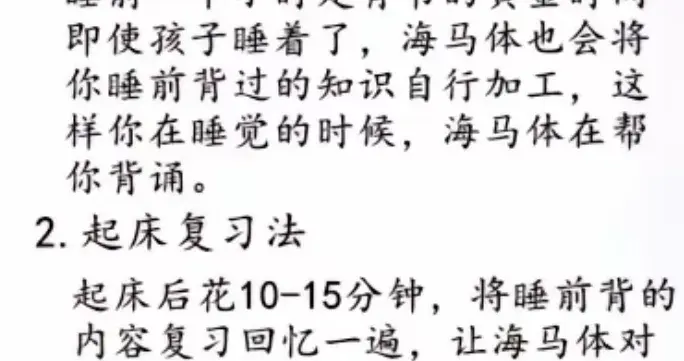 即使孩子睡着了，海马体也会将
你睡前背过的知识自行加工，这
样你在睡觉的时候，海马体在帮
你背诵。
2.起床复习法
起床后花10-15分钟，将睡前背的
内容复习回忆一遍，让海马体对